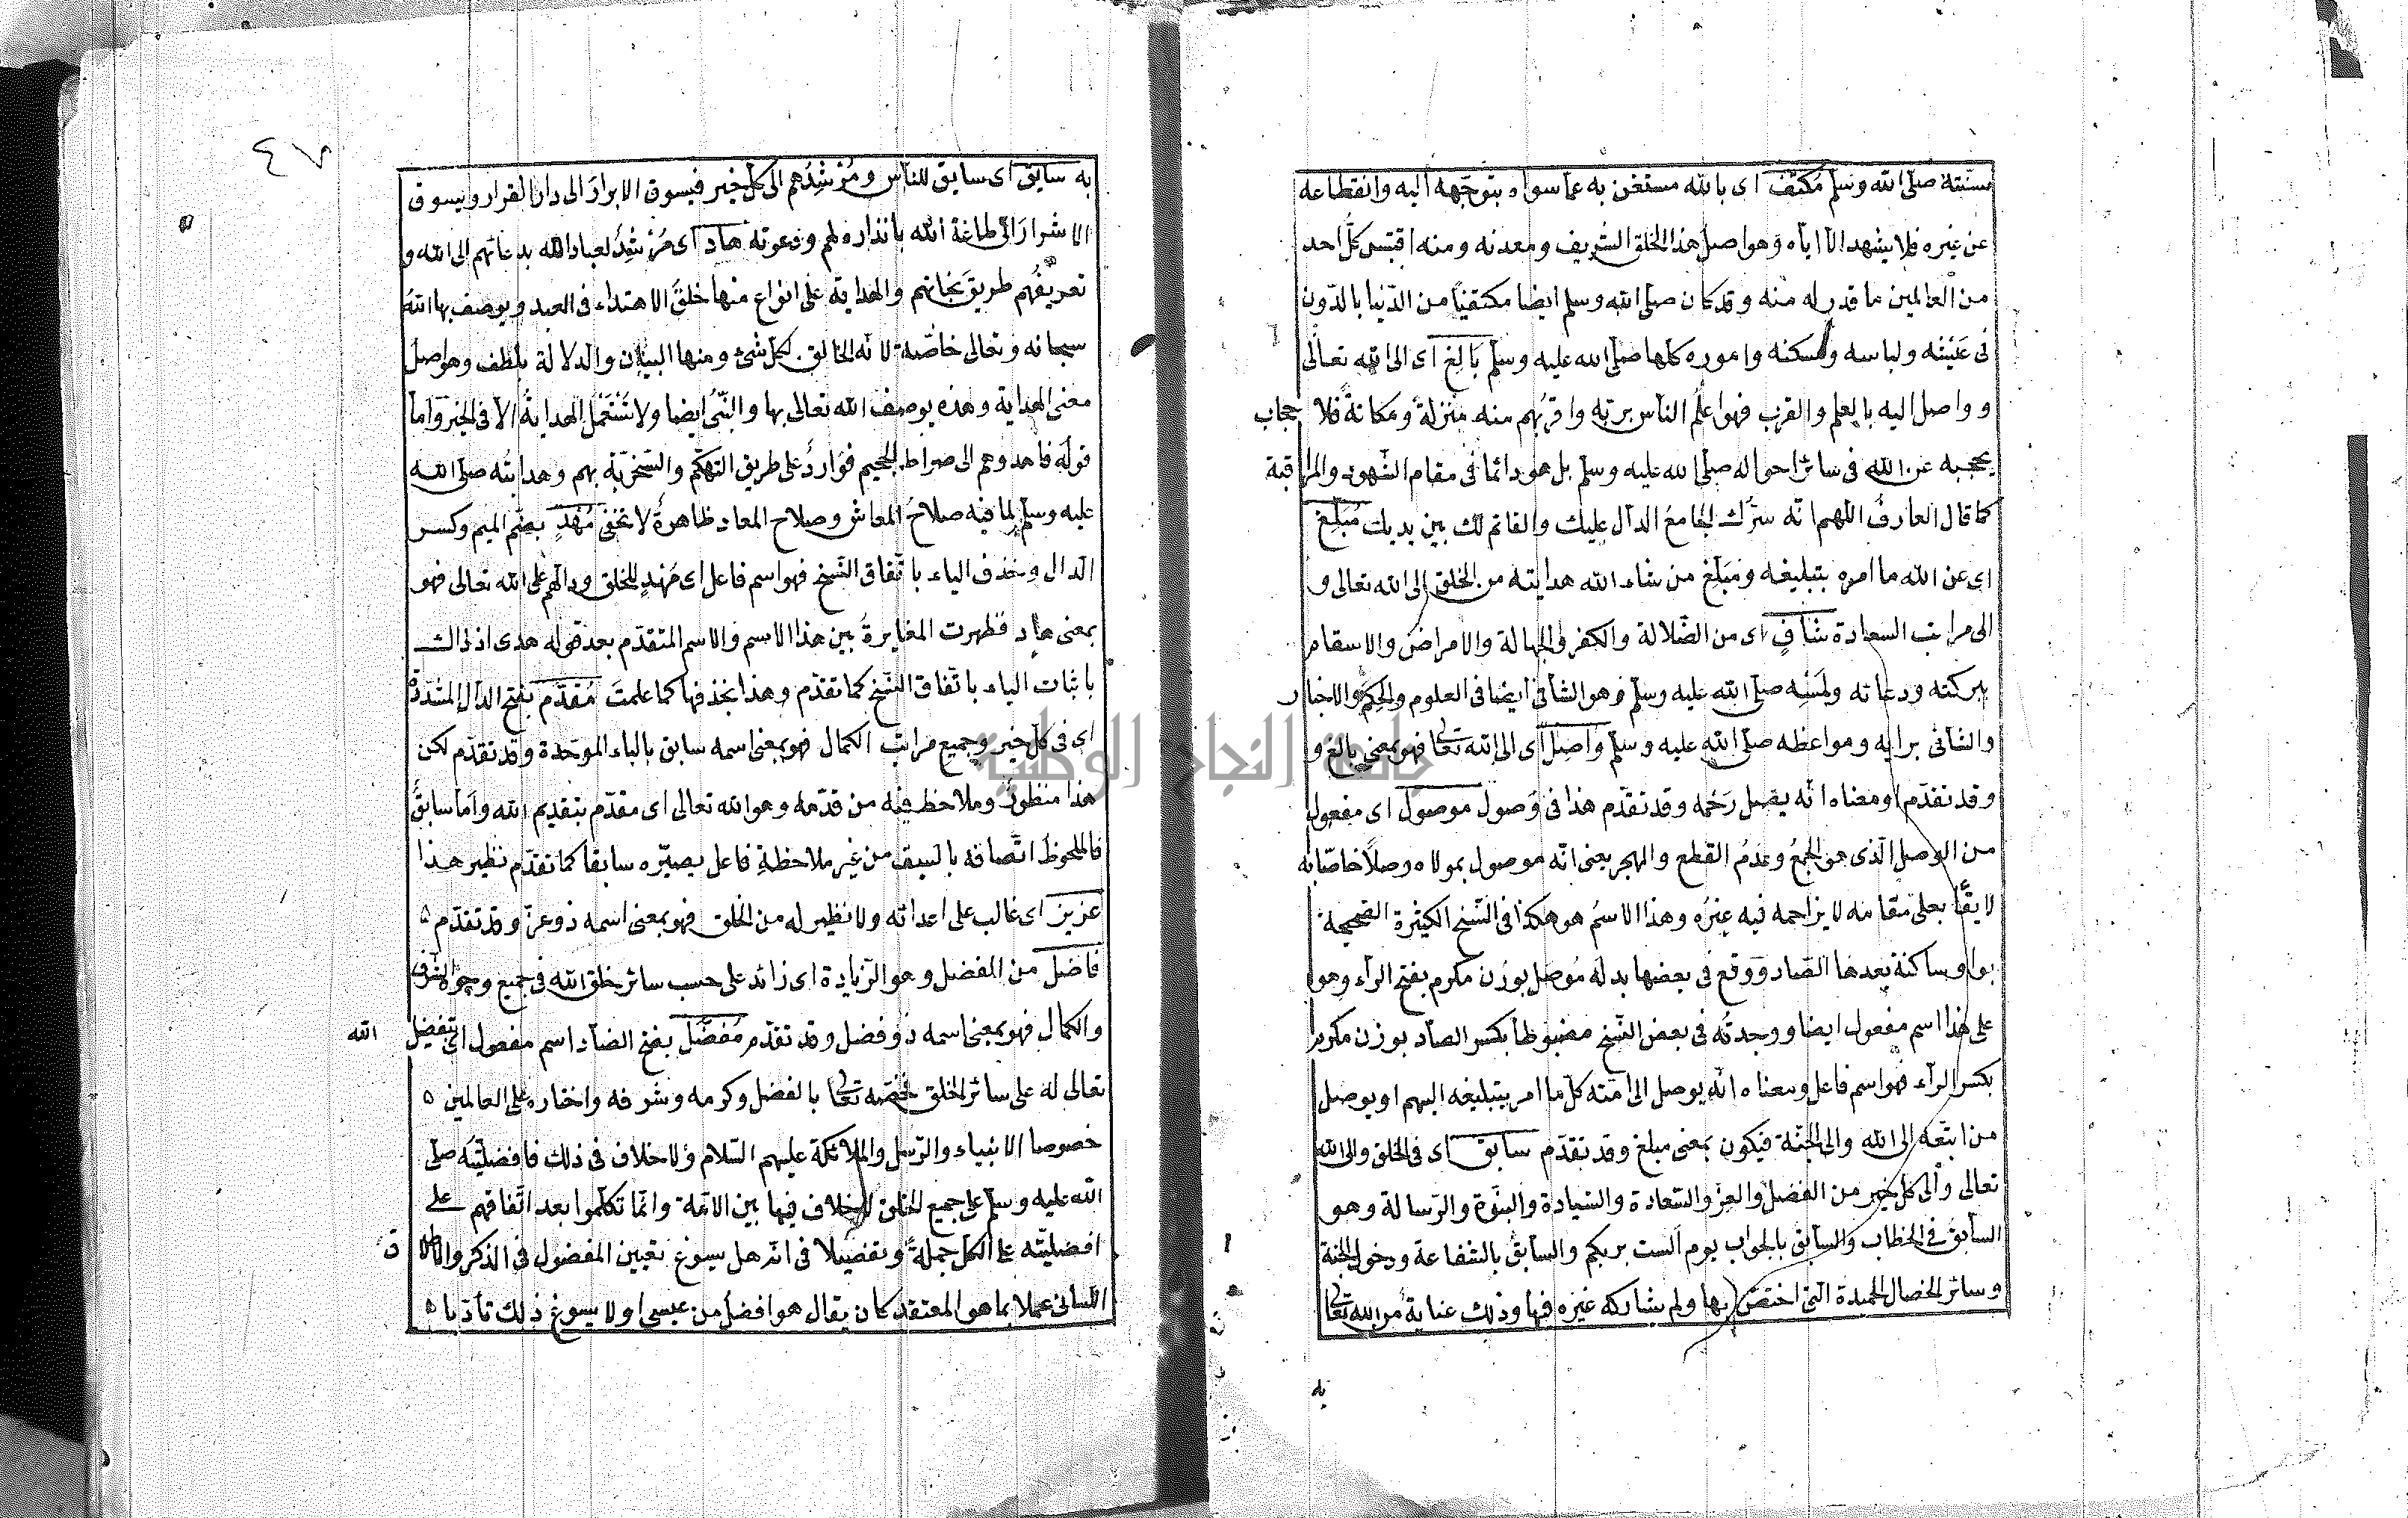 بسنته صلى الله وسلم مكتف اى بالله مستغن به عما سواه بتوجهه اليه وانقطاعه
عن غيره فلا يشهد الا اياه وهو اصل هذا الخلق الشريف ومعدنه ومنه اقتبس كل احد
من العالمين ما قدر له منه وقد كان صلى الله وسلم ايضا مكتفيا من الدنيا بالدون
فى عيشه ولباسه ومسكنه واموره كلها صلى الله عليه وسلم بالغ اى الى الله تعالى
و واصل اليه بالعلم والقرب فهو اعلم الناس بربه واقربهم منه منزلة ومكانة فلا حجاب
يحجبه عن الله فى سائر احواله صلى الله عليه وسلم بل هو دائما فى مقام الشهود والمراقبة
كما قال العارف اللهم انه سرك الجامع الدال عليك والقائم لك بين يديك مبلغ
اى عن الله ما امره بتبليغه ومبلغ من شاء الله هدايته من الخلق الى الله تعالى و
الى مراتب السعادة شاف اى من الضلالة والكفر والجهالة والامراض والاسقام
ببركته ودعائه ولمسه صلى الله عليه وسلم وهو الشافى ايضا فى العلوم والحكم والاخبار
والشافى برايه ومواعظه صلى الله عليه وسلم واصل اى الى الله تعالى فهو بمعنى بالغ و
وقد تقدم او معناه انه يصل رحمه وقد تقدم هذا فى وصول موصول اى مفعول
من الوصل الذى هو الجمع وعدم القطع والهجر يعنى انه موصول بمولاه وصلا خاصا به
لائقا بعلى مقامه لا يزاحمه فيه غيره وهذا الاسم هو هكذا فى النسخ الكثيرة الصحيحة
بواو ساكنة بعدها الصاد ووقع فى بعضها بدله موصل بوزن مكرم بفتح الراء وهو
على هذا اسم مفعول ايضا ووجدته فى بعض النسخ مضبوطا بكسر الصاد بوزن مكرم
بكسر الراء فهو اسم فاعل ومعناه انه يوصل الى امته كل ما امر بتبليغه اليهم او يوصل
من اتبعه الى الله والى الجنة فيكون بمعنى مبلغ وقد تقدم سابق اى فى الخلق والى الله
تعالى والى كل خير من الفضل والعز والسعادة والسيادة والنبوة والرسالة وهو
السابق فى الخطاب والسابق بالجواب يوم الست بربكم والسابق بالشفاعة ودخول الجنة
وسائر الخصال الحميدة التى اختص بها ولم يشاركه غيره فيها وذلك عناية من الله تعالى
به
٤٧
به سايق اى سايق للناس ومرشدهم الى كل خير فيسوق الابرار الى دار القرار ويسوق
الاشرار الى طاعة الله بانذاره لهم ودعوته هاد اى مرشد لعباد الله بدعائهم الى الله و
تعريفهم طريق نجاتهم والهداية على انواع منها خلق الاهتداء فى العبد ويوصف بها الله
سبحانه وتعالى خاصة لانه الخالق لكل شئ ومنها البيان والدلالة بلطف وهو اصل
معنى الهداية وهذه يوصف الله تعالى بها والنبى ايضا ولا تستعمل الهداية الا فى الخير واما
قوله فاهدوهم الى صراط الجحيم فوارد على طريق التهكم والسخرية بهم وهدايته صلى الله
عليه وسلم لما فيه صلاح المعاش وصلاح المعاد ظاهرة لا تخفى مهد بضم الميم وكسر
الدال وحذف الياء باتفاق النسخ فهو اسم فاعل اى مهد للخلق ودالهم على الله تعالى فهو
بمعنى هاد فظهرت المغايرة بين هذا الاسم والاسم المتقدم بعد قوله هدى اذ ذاك
باثبات الياء باتفاق النسخ كما تقدم وهذا بحذفها كما علمت مقدم بفتح الدال المشددة
اى فى كل خير وجميع مراتب الكمال فهو بمعنى اسمه سابق بالباء الموحدة وقد تقدم لكن
هذا منظور وملاحظ فيه من قدمه وهو الله تعالى اى مقدم بتقديم الله واما سابق
فالملحوظ اتصافه بالسبق من غير ملاحظة فاعل يصيره سابقا كما تقدم نظير هذا
عزيز اى غالب على اعدائه ولا نظير له من الخلق فهو بمعنى اسمه ذو عز وقد تقدم ٥
فاضل من الفضل وهو الزيادة اى زائد على حسب سائر خلق الله فى جميع وجوه الشرف
والكمال فهو بمعنى اسمه ذو فضل وقد تقدم مفضل بفتح الضاد اسم مفعول اى بتفضيل الله
تعالى له على سائر الخلق فخصه تعالى بالفضل وكرمه وشرفه واختاره على العالمين ٥
خصوصا الانبياء والرسل والملائكة عليهم السلام ولا خلاف فى ذلك فافضليته صلى
الله عليه وسلم على جميع الخلق لا خلاف فيها بين الائمة وانما تكلموا بعد اتفاقهم على
افضليته على الكل جملة وتفصيلا فى انه هل يسوغ تعيين المفضول فى الذكر والاطلاق
اللسانى عملا بما هو المعتقد كان يقال هو افضل من عيسى او لا يسوغ ذلك تأدبا ٥
جامعة النجاح الوطنية